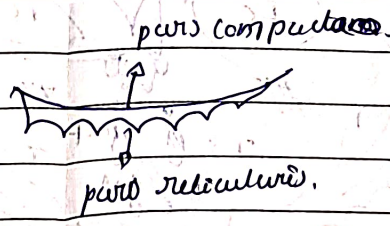 pars compacta
pars reticularis.